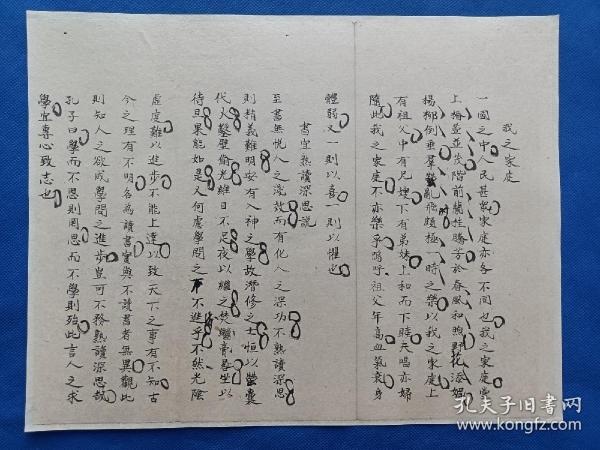 我之家庭
一國之中人民甚眾家庭亦各不同也我之家庭堂
上椿萱並茂階前蘭桂騰芳於春風和煦野花添媚
楊柳倒垂羣鶯亂飛頗極一時之樂以我之家庭上
有祖父中有兄嫂下有弟妹上和而下睦夫唱亦婦
隨此我之家庭不亦樂乎嗚呼祖父年高血氣衰身
體弱又一則以喜一則以懼也
書宜熟讀深思說
至書無悅人之淺效而有化人之深功不熟讀深思
則精義難明安有入神之學故潛修之士恒以螢囊
代火鑿壁偷光維日不足夜以繼之焚膏晷坐以
待旦果能如是人何慮學問之不進乎不然光陰
虛度難以進步不能上達以致天下之事有不知古
今之理有不明名為讀書實與不讀書者無異觀此
則知人之欲成學問之進步豈可不務熟讀深思故
孔子曰學而不思則罔思而不學則殆此言人之求
學宜專心致志也
孔夫子旧书网
www.kongfz.com